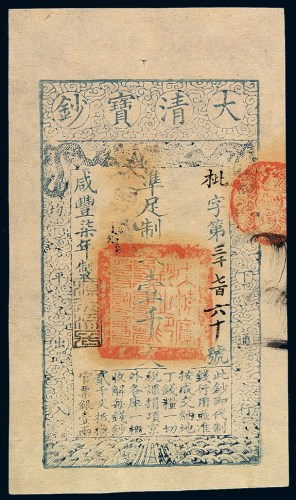 大清寶鈔
天下通行
枇字第三千七百六十號
準足制錢壹千文
咸豐柒年製
均平出入
此鈔即代制
錢行用並准
按成交納地
丁錢糧一切
稅課捐項京
外各庫一概
收解每錢鈔
貳千文抵換
官票銀壹兩